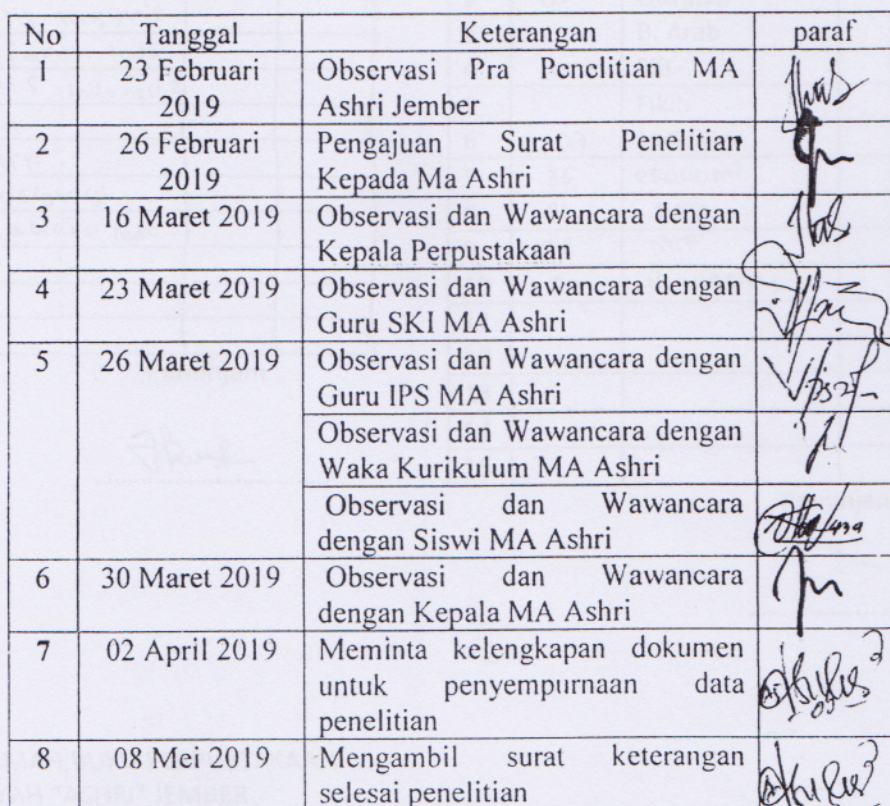 No Tanggal Keterangan paraf
1 23 Februari Observasi Pra Penelitian MA
2019 Ashri Jember
2 26 Februari Pengajuan Surat Penelitian
2019 Kepada Ma Ashri
3 16 Maret 2019 Observasi dan Wawancara dengan
Kepala Perpustakaan
4 23 Maret 2019 Observasi dan Wawancara dengan
Guru SKI MA Ashri
5 26 Maret 2019 Observasi dan Wawancara dengan
Guru IPS MA Ashri
Observasi dan Wawancara dengan
Waka Kurikulum MA Ashri
Observasi dan Wawancara
dengan Siswi MA Ashri
6 30 Maret 2019 Observasi dan Wawancara
dengan Kepala MA Ashri
7 02 April 2019 Meminta kelengkapan dokumen
untuk penyempurnaan data
penelitian
8 08 Mei 2019 Mengambil surat keterangan
selesai penelitian